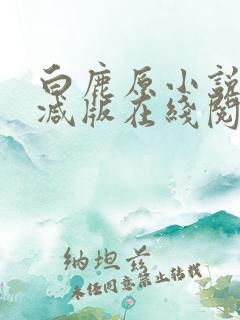 白鹿原小説
减版在綫閱
纳坦兹
未经同意禁止转载